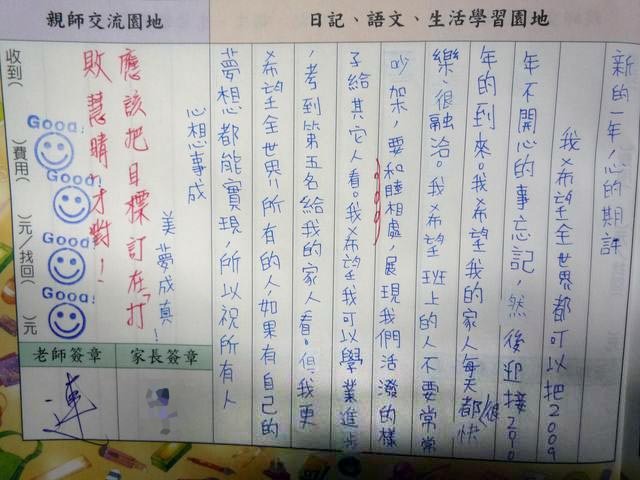 親師交流園地
日記、語文、生活學習園地
新的一年,心的期許
我希望全世界都可以把2009
年不開心的事忘記,然後迎接2010
年的到來。我希望我的家人每天都很快
樂、很融洽。我希望班上的人不要常常
吵架,要和睦相處,展現我們活潑的樣
子給其它人看。我希望我可以學業進步
,考到第五名給我的家人看。但我更
希望全世界所有的人,如果有自己的
夢想都能實現,所以祝所有人
心想事成
美夢成真!
應該把目標訂在"打
敗慧晴"才對!
Good!
Good!
Good!
Good!
收到( )費用( )元/找回( )元
家長簽章
老師簽章
連